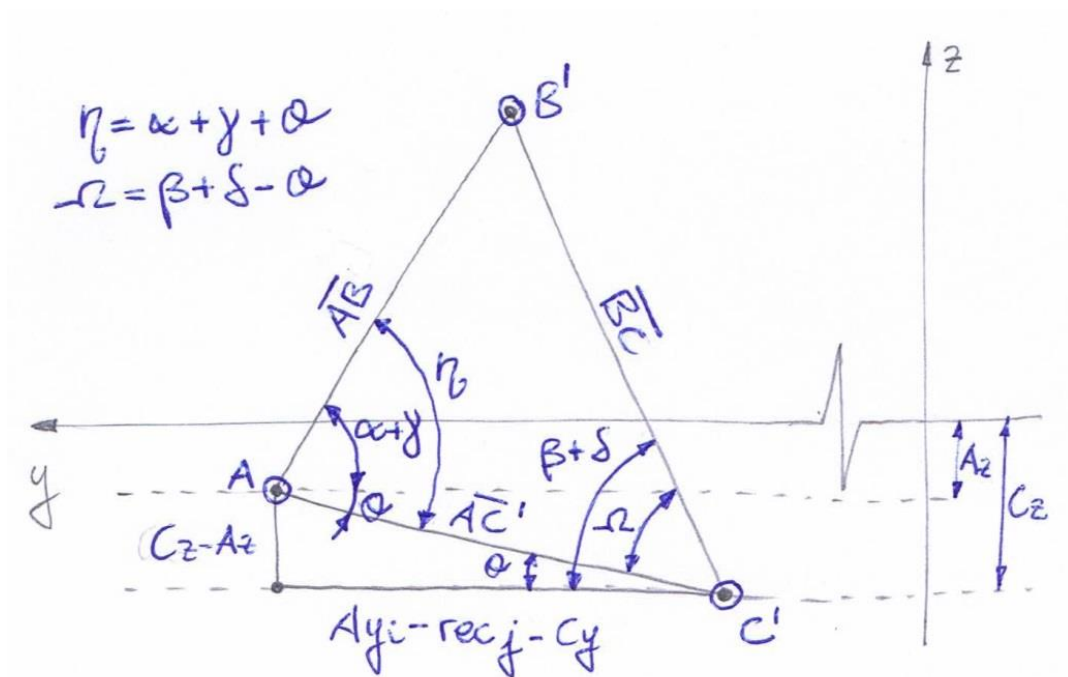 η = α + γ + θ
Ω = β + δ - θ
B'
z
AB
BC
η
α+γ
β+δ
A
θ
AC'
Ω
Az
Cz
y
Cz-Az
θ
Ayi-recj-Cy
C'